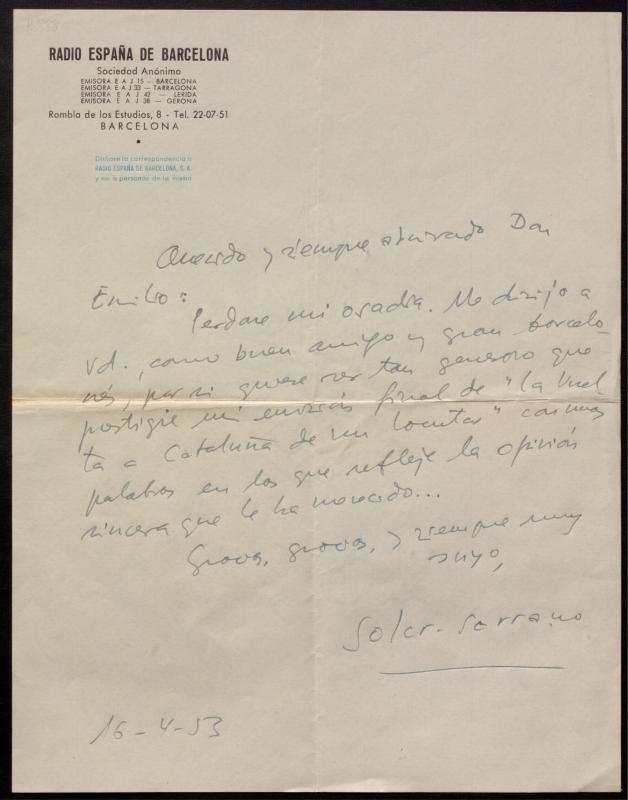 RADIO ESPAÑA DE BARCELONA
Sociedad Anónima
EMISORA E A J 15 — BARCELONA
EMISORA E A J 33 — TARRAGONA
EMISORA E A J 42 — LERIDA
EMISORA E A J 38 — GERONA
Rambla de los Estudios, 8 - Tel. 22-07-51
BARCELONA
Diríjase la correspondencia a
RADIO ESPAÑA DE BARCELONA, S. A.
y no a personas de la misma
Querido y siempre admirado Don
Emilio:
Perdone mi osadía. Me dirijo a
Vd., como buen amigo y gran barcelo-
nés, por si quiere ser tan generoso que
prestigie mi emisión final de "La Vuel-
ta a Cataluña de un locutor" con unas
palabras en las que refleje la opinión
sincera que le ha merecido...
Gracias, gracias, y siempre muy
suyo,
Soler-Serrano
16-4-53